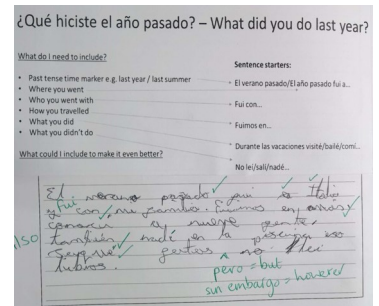 ¿Qué hiciste el año pasado? – What did you do last year?
What do I need to include?
• Past tense time marker e.g. last year / last summer
• Where you went
• Who you went with
• How you travelled
• What you did
• What you didn't do
What could I include to make it even better?
Sentence starters:
El verano pasado/El año pasado fui a...
Fui con...
Fuimos en...
Durante las vacaciones visité/bailé/comí...
No leí/salí/nadé...
El verano pasado fui a Italia
fui
y con mi familia. Fuimos en
conocer a nueve gente
también nadé en la piscina
no lei
libros.
pero = but
sin embargo = however